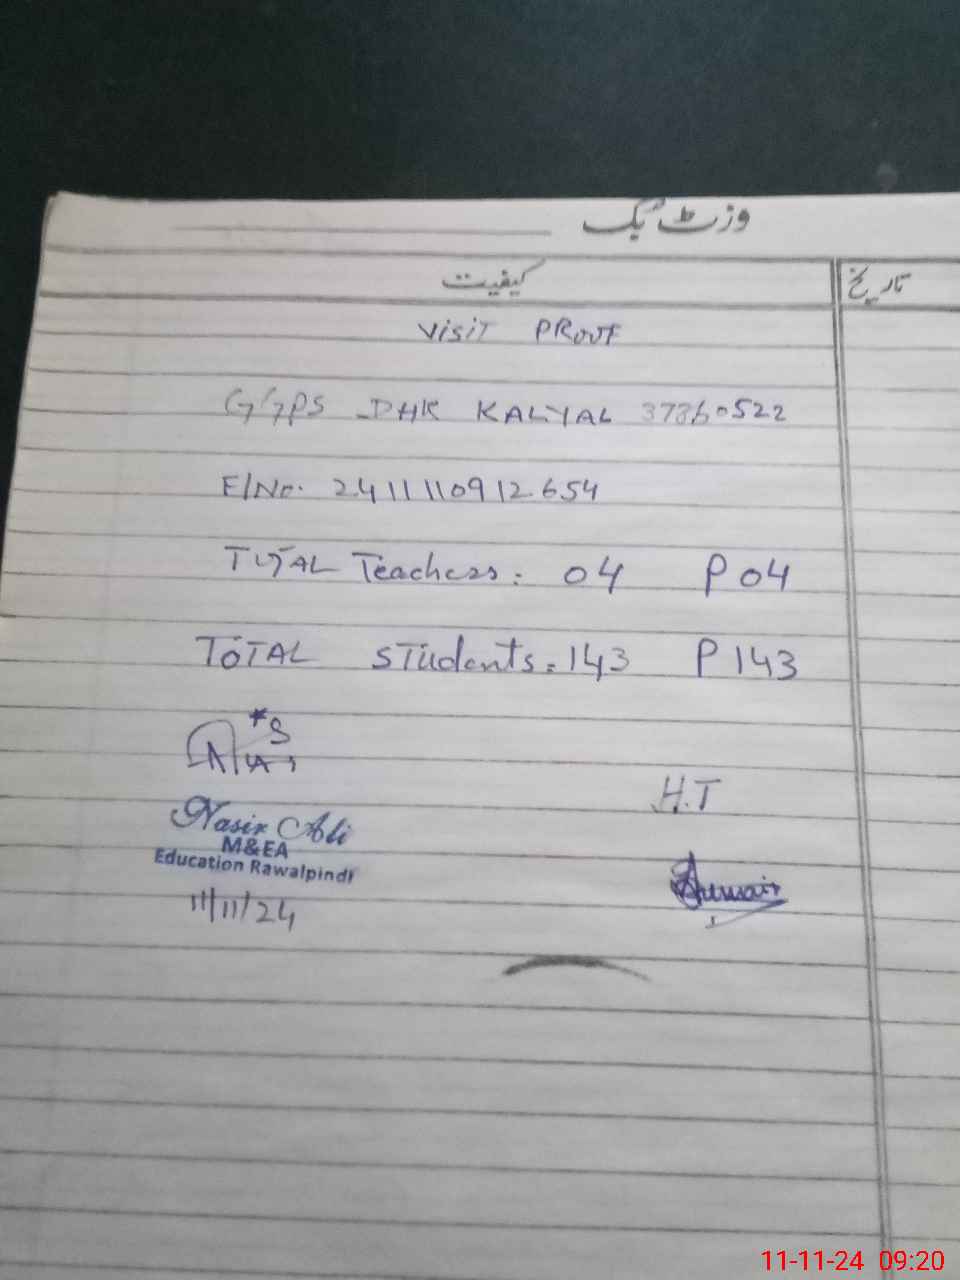 وزٹ بک
کیفیت
تاریخ
VISIT PROOF
G/GPS DHK KALYAL 37360522
F/No. 2411110912654
TOTAL Teachers: 04 P 04
TOTAL Students: 143 P 143
H.T
Nasir Ali
M&EA
Education Rawalpindi
11/11/24
11-11-24 09:20